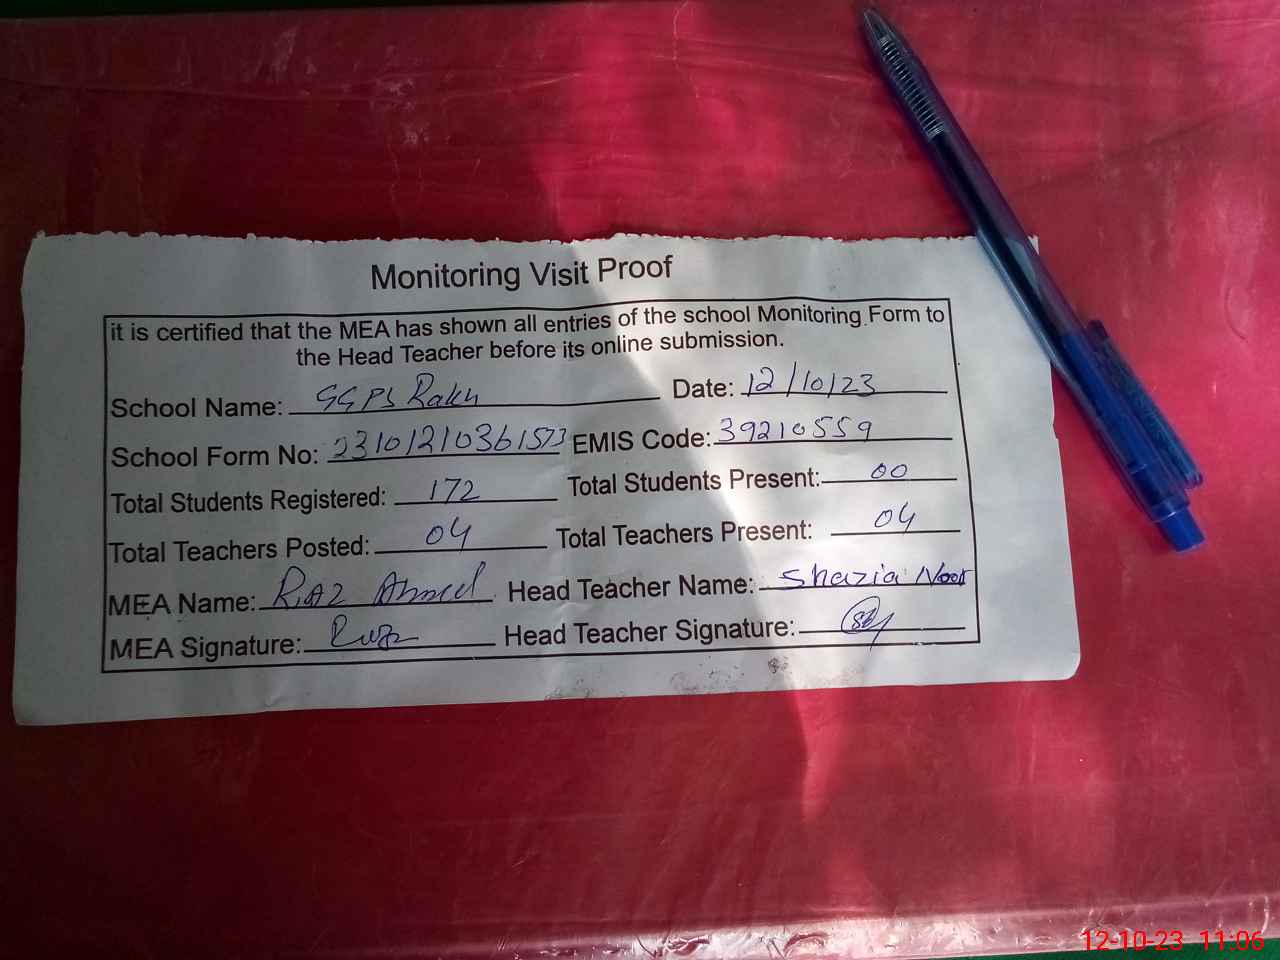 Monitoring Visit Proof
it is certified that the MEA has shown all entries of the school Monitoring Form to
the Head Teacher before its online submission.
School Name: GGPS Rakh Date: 12/10/23
School Form No: 23101210361573 EMIS Code: 39210559
Total Students Registered: 172 Total Students Present: 00
Total Teachers Posted: 04 Total Teachers Present: 04
MEA Name: Riaz Ahmed Head Teacher Name: Shazia Noor
MEA Signature: Head Teacher Signature:
12-10-23 11:06